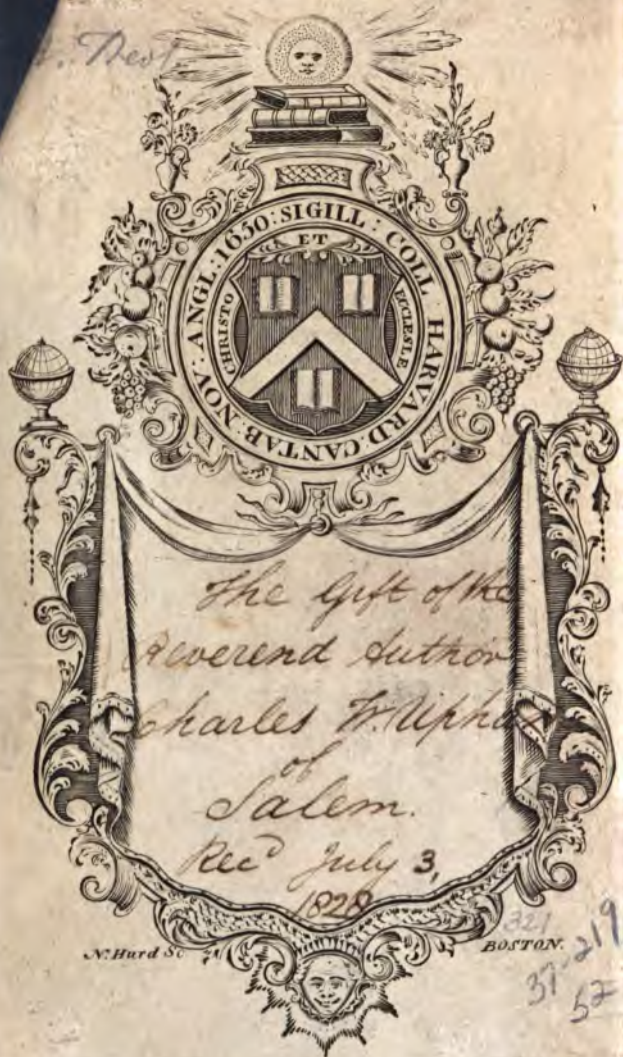 SIGILL : COLL HARVARD. CANTAB. NOV. ANGL. 1650:
CHRISTO ET ECCLESIÆ
The Gift of the
Reverend Author
Charles W. Upham
of
Salem.
Rec^d July 3,
1828
N. Hurd Sc
BOSTON.
321
37-219
52